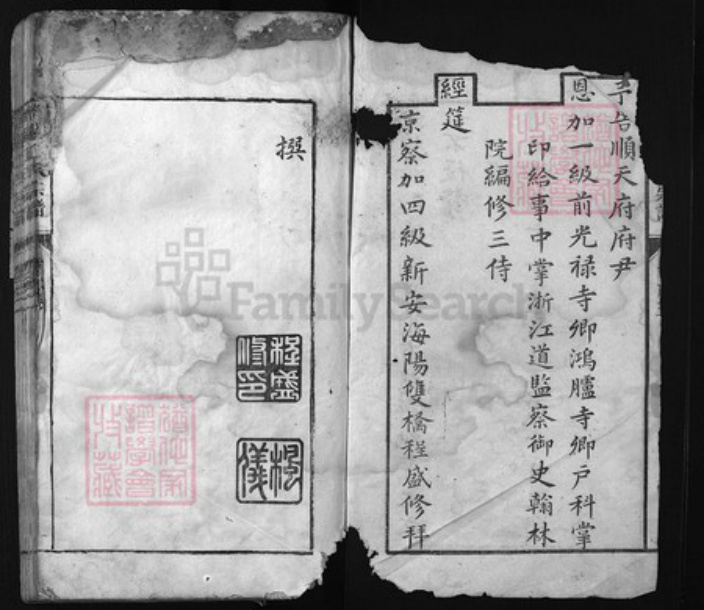 予告順天府府尹
恩加一級前光祿寺卿鴻臚寺卿戶科掌
印給事中掌浙江道監察御史翰林
院編修三侍
經筵
京察加四級新安海陽雙橋程盛修拜
撰
程盛修印
楓儀
FamilySearch